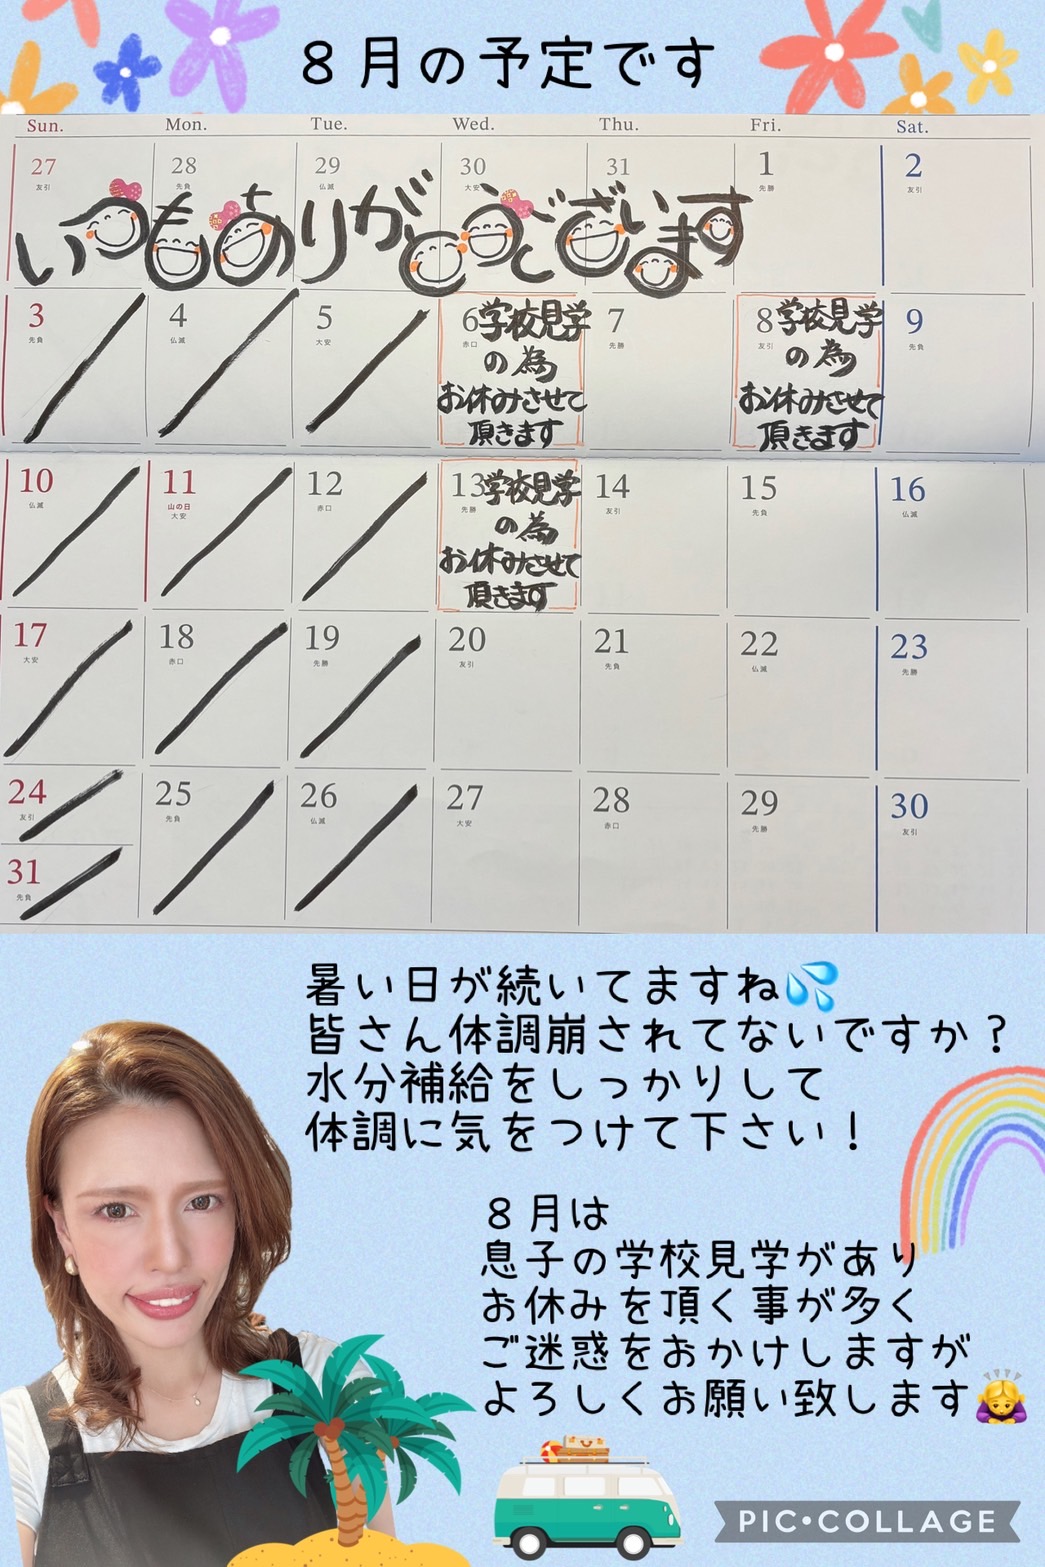 8月の予定です
Sun. Mon. Tue. Wed. Thu. Fri. Sat.
27 28 29 30 31 1 2
友引 先負 仏滅 大安 先勝 友引
いつもありがとうございます
3 4 5 6 7 8 9
先負 仏滅 大安 赤口 先勝 友引 先負
学校見学
の為
お休みさせて
頂きます
学校見学
の為
お休みさせて
頂きます
10 11 12 13 14 15 16
仏滅 山の日 大安 赤口 先勝 友引 先負 仏滅
学校見学
の為
お休みさせて
頂きます
17 18 19 20 21 22 23
大安 赤口 先勝 友引 先負 仏滅 先勝
24 25 26 27 28 29 30
友引 先負 仏滅 大安 赤口 先勝 友引
31
先負
暑い日が続いてますね💦
皆さん体調崩されてないですか？
水分補給をしっかりして
体調に気をつけて下さい！
8月は
息子の学校見学があり
お休みを頂く事が多く
ご迷惑をおかけしますが
よろしくお願い致します🙇‍♀️
PIC•COLLAGE